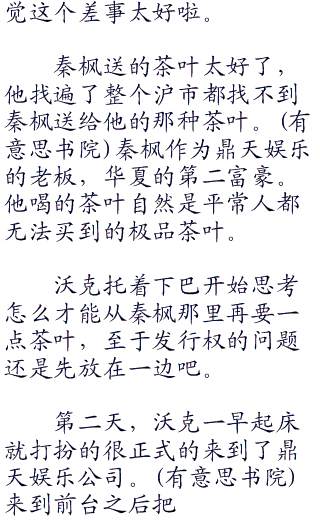 觉这个差事太好啦。
秦枫送的茶叶太好了，
他找遍了整个沪市都找不到
秦枫送给他的那种茶叶。(有
意思书院)秦枫作为鼎天娱乐
的老板，华夏的第二富豪。
他喝的茶叶自然是平常人都
无法买到的极品茶叶。
沃克托着下巴开始思考
怎么才能从秦枫那里再要一
点茶叶，至于发行权的问题
还是先放在一边吧。
第二天，沃克一早起床
就打扮的很正式的来到了鼎
天娱乐公司。(有意思书院)
来到前台之后把